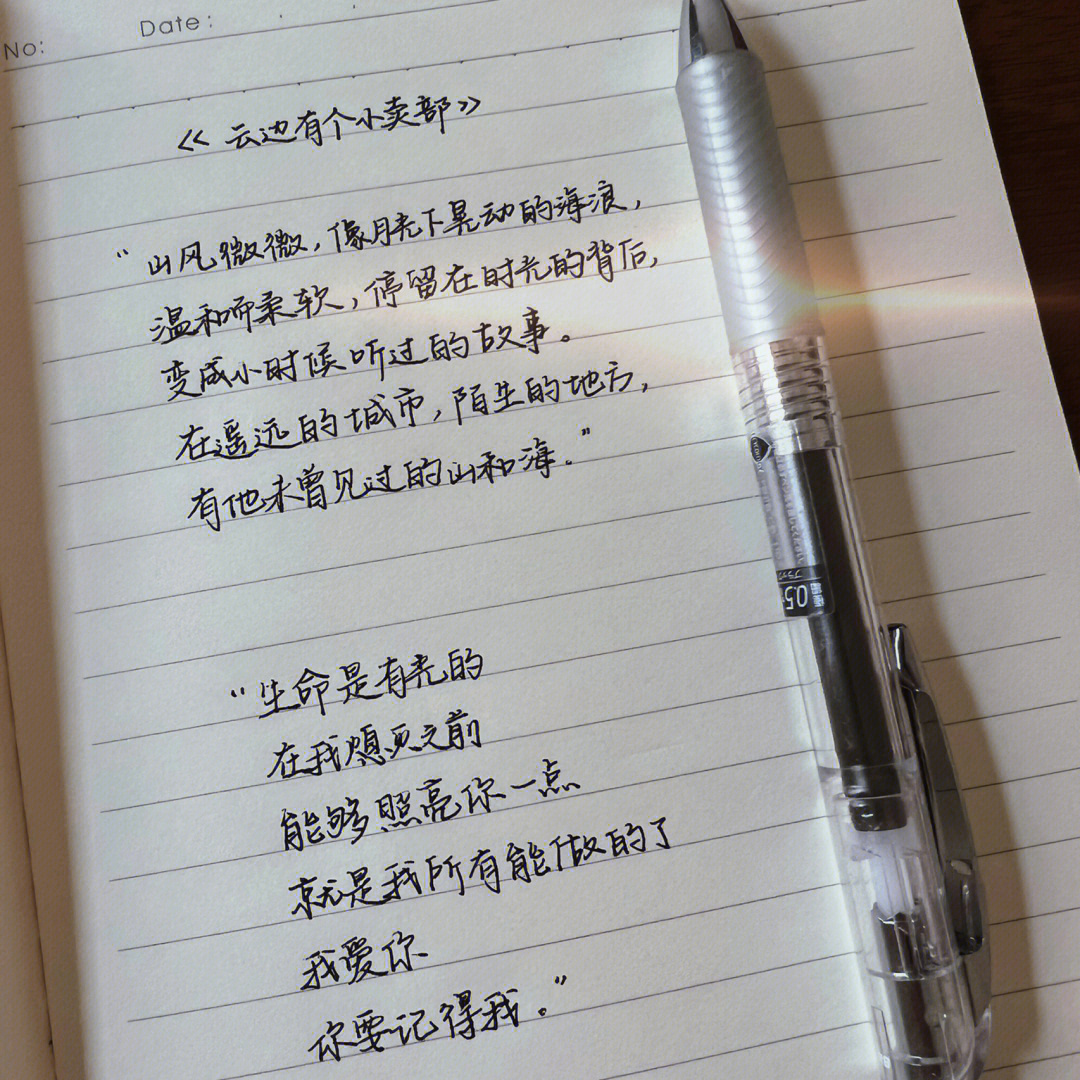 No:
Date:
《云边有个小卖部》
“山风微微，像月光下晃动的海浪，
温和而柔软，停留在时光的背后，
变成小时候听过的故事。
在遥远的城市，陌生的地方，
有他未曾见过的山和海。”
“生命是有光的
在我熄灭之前
能够照亮你一点
就是我所有能做的了
我爱你
你要记得我。”
0.5